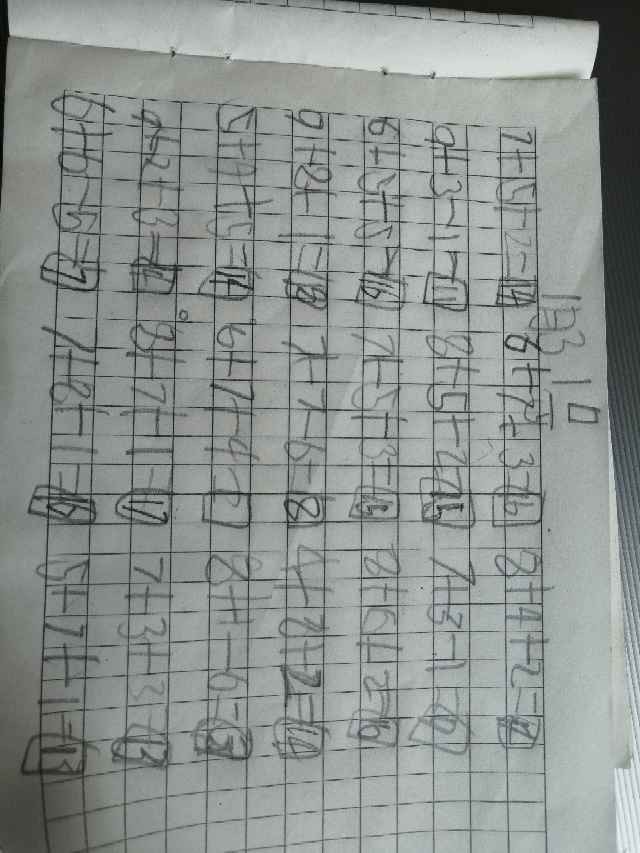 7+5+2=14 8+7+3= 8+4+2=14
9+3-1=11 8+5+2=15 7+3-1=
6+5+5=16 7+5+3=15 8+6+2=16
9+2+1= 7+7-6=8 4+8+2=14
5+4+5=14 6+7+4= 8+1-6=3
9+2+3=14 8+7+1= 7+3+3=13
6+6-5=7 7+8+1=16 5+7+1=13